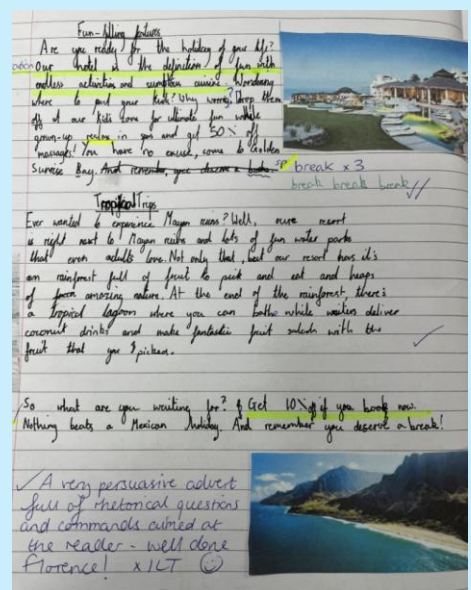 Fun-filling features
Are you ready for the holiday of your life?
Our hotel is the definition of fun with
endless activities and sumptous cuisine. Wondering
where to put your kids? Why worry? Drop them
off at our kids zone for ultimate fun while
grown-up relax in spa and get 50% off
massages! You have no excuse, come to Golden
Sunrise Bay. And remember, you deserve a
sp break x3
break break break
Tropical Trips
Ever wanted to experience Mayan ruins? Well, our resort
is right next to Mayan ruins and lots of fun water parks
that even adults love. Not only that, but our resort has it's
own rainforest full of fruit to pick and eat and heaps
of amazing nature. At the end of the rainforest, there's
a tropical lagoon where you can bathe while waiters deliver
coconut drinks and make fantastic fruit salads with the
fruit that you picked.
So what are you waiting for? Get 10% off if you book now.
Nothing beats a Mexican holiday. And remember you deserve a break!
A very persuasive advert
full of rhetorical questions
and commands aimed at
the reader - well done
Florence! x1LT